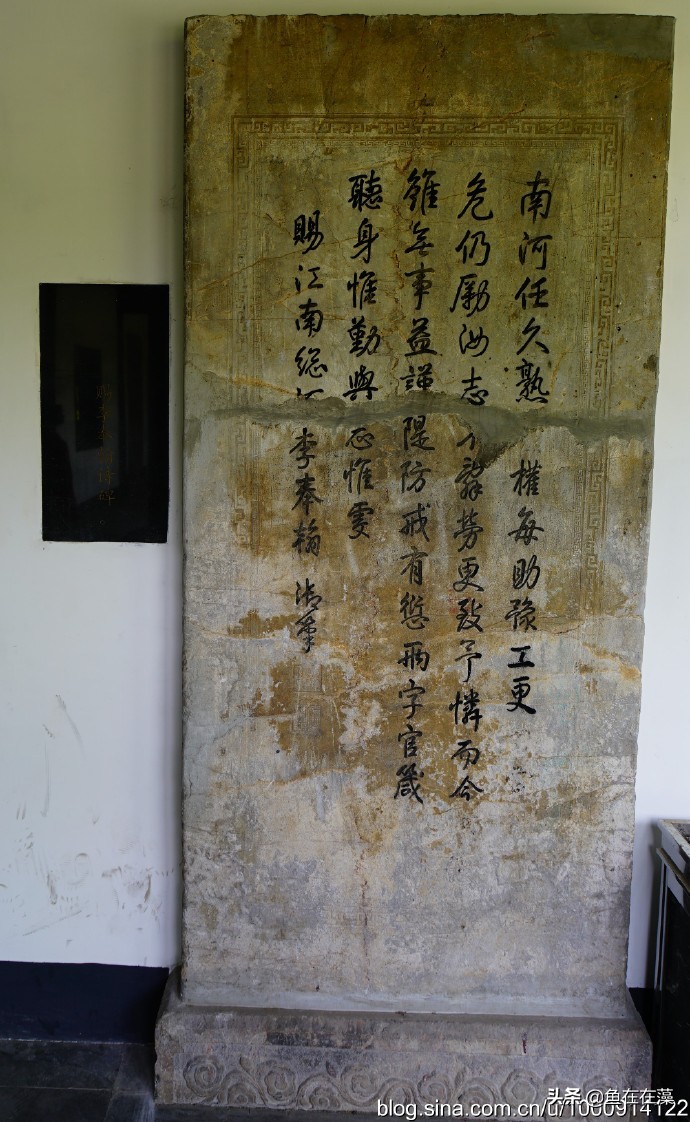 南河任久熟 權每助豫工更
危仍勵汝志 辭勞更致予憐而今
雖無事益謹隄防戒有愆兩字官箴
聽身惟勤與 正惟雯
賜江南總河李奉翰 御筆
头条@鱼在在藻
blog.sina.com.cn/u/1000914122